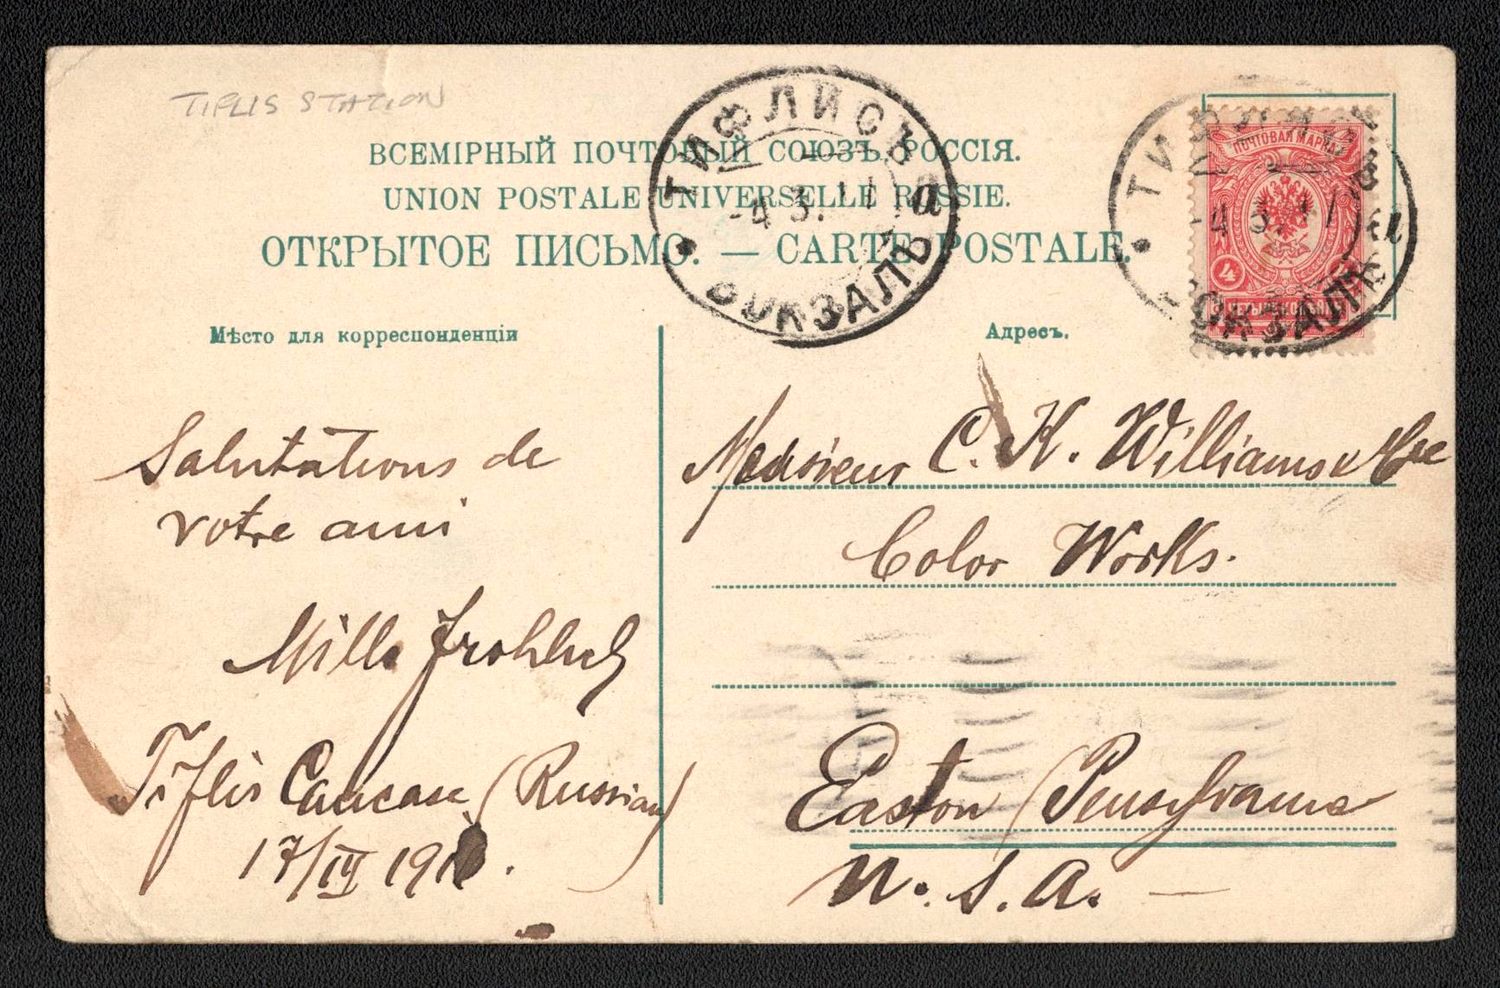 TIFLIS STATION
ВСЕМІРНЫЙ ПОЧТОВЫЙ СОЮЗЪ. РОССІЯ.
UNION POSTALE UNIVERSELLE RUSSIE.
ОТКРЫТОЕ ПИСЬМО. — CARTE POSTALE.
ТИФЛИСЪ
-4 3. 11
а
ВОКЗАЛЪ
ТИФЛИСЪ
-4 3. 11
ВОКЗАЛЪ
ПОЧТОВАЯ МАРКА
4
Мѣсто для корреспонденціи
Адресъ.
Salutations de
votre ami
Tiflis Caucase (Russian)
17/IV 191
Monsieur C. K. Williams &
Color Works.
Easton (Pensylvania
U. S. A. —